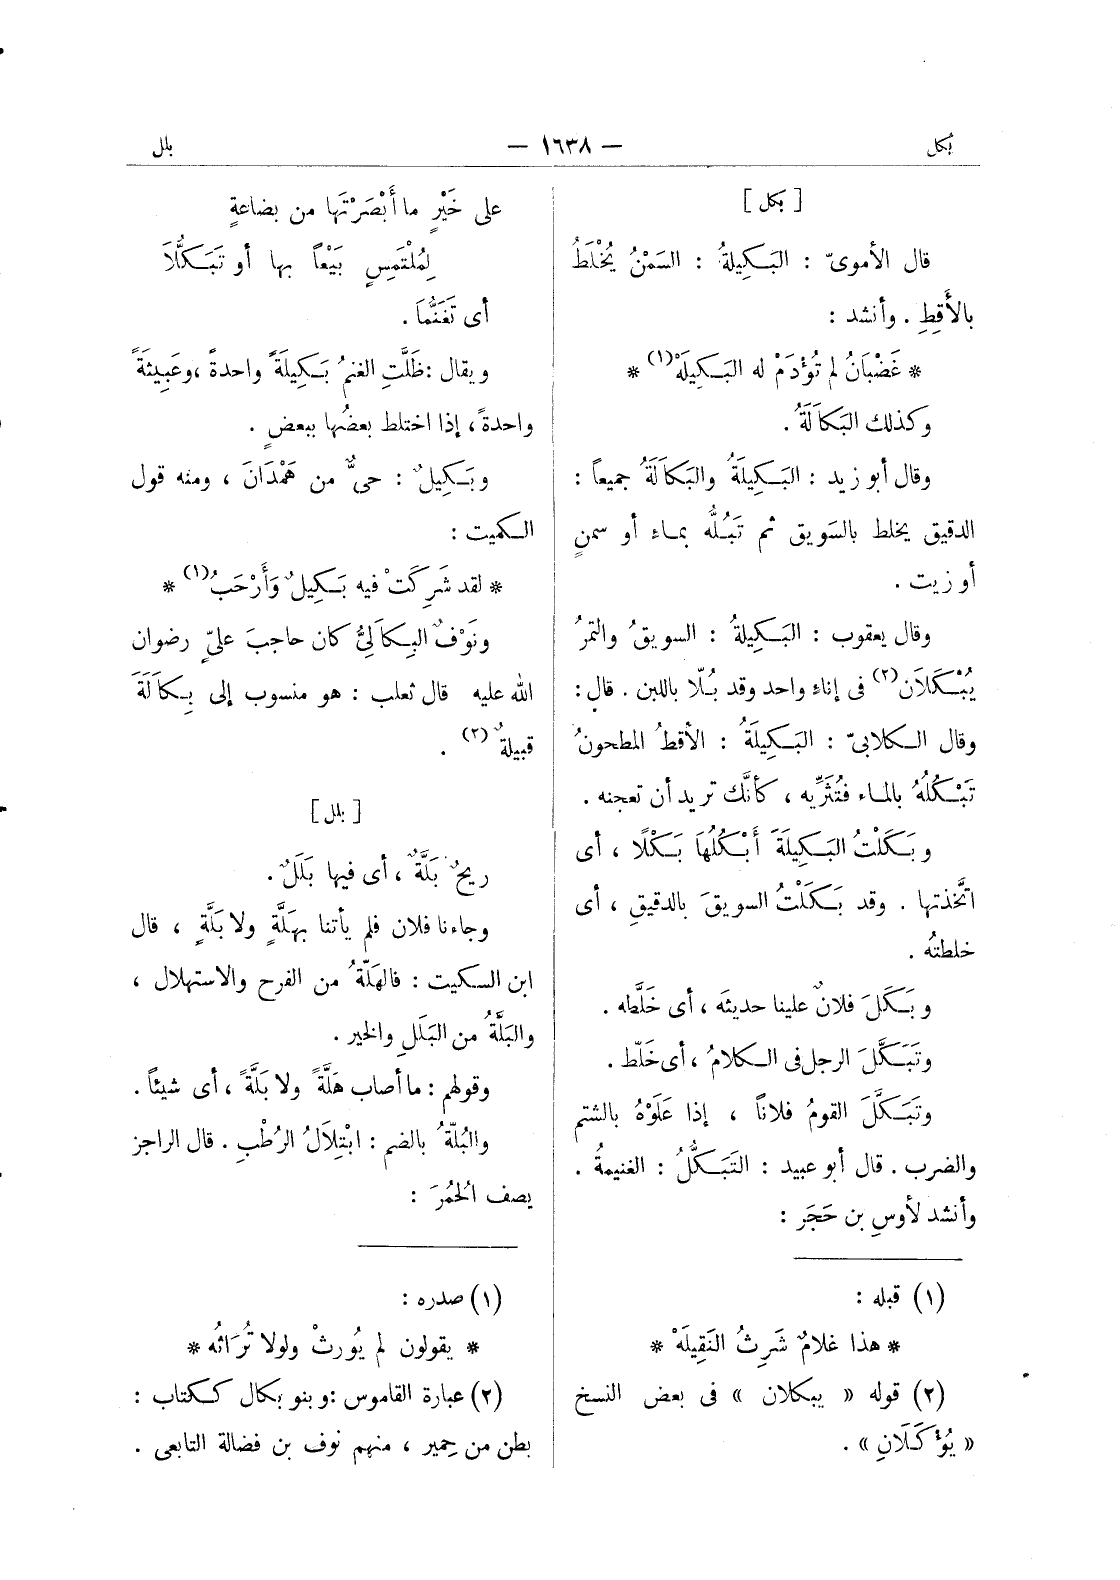 بكل
— ١٦٣٨ —
بلل
[ بكل ]
قال الأموىّ : البَكِيلةُ : السَمْنُ يُخْلَطُ
بالأَقِطِ . وأنشد :
* غَضْبَانُ لم تُؤْدَمْ له البَكِيلَهْ (١) *
وكذلك البَكَالَةُ .
وقال أبو زيد : البَكِيلَةُ والبَكَالَةُ جميعاً :
الدقيق يخلط بالسَويق ثم تَبُلُّه بماء أو سمنٍ
أو زيت .
وقال يعقوب : البَكِيلةُ : السويقُ والتمرُ
يُبْكَلَانِ (٢) فى إناءٍ واحد وقد بُلّا باللبن . قال :
وقال الكلابىّ : البَكِيلَةُ : الأقطُ المطحونُ
تَبْكُلُهُ بالماء فتُثَرِّيه ، كأنَّك تريد أن تعجنه .
وبَكَلْتُ البَكِيلَةَ أَبْكُلُهَا بَكْلًا ، أى
اتَّخذتها . وقد بَكَلْتُ السويقَ بالدقيقِ ، أى
خلطتُه .
وبَكَلَ فلانٌ علينا حديثَه ، أى خَلَّطه .
وتَبَكَّلَ الرجل فى الكلامُ ، أى خَلّط .
وتَبَكَّلَ القومُ فلاناً ، إذا عَلَوْهُ بالشتم
والضرب . قال أبو عبيد : التَبَكُّلُ : الغنيمةُ .
وأنشد لأوسِ بن حَجَر :
(١) قبله :
* هذا غلامٌ شَرِثُ النَقِيلَهْ *
(٢) قوله « يبكلان » فى بعض النسخ
« يُؤْكَلَانِ » .
على خَيْرِ ما أَبْصَرْتَها من بضاعةٍ
لِمُلْتَمِسٍ بَيْعاً بها أو تَبَكُّلَا
أى تَغَنُّمَا .
ويقال : ظَلَّتِ الغنمُ بَكِيلَةً واحدةً ، وعَبِيثَةً
واحدةً ، إذا اختلط بعضُها ببعضٍ .
وبَكِيلٌ : حىٌّ من هَمْدَانَ ، ومنه قول
الكميت :
* لقد شَرِكَتْ فيه بَكِيلٌ وَأَرْحَبُ (١) *
ونَوْفٌ البِكَالِىُّ كان حاجبَ علىٍّ رضوان
الله عليه قال ثعلب : هو منسوب إلى بِكَالَةَ
قبيلةٌ (٢) .
[ بلل ]
ريحٌ بَلَّةٌ ، أى فيها بَلَلٌ .
وجاءنا فلان فلم يأتنا بِهَلَّةٍ ولا بَلَّةٍ ، قال
ابن السكيت : فالهَلّةُ من الفرح والاستهلال ،
والبَلَّةُ من البَلَلِ والخير .
وقولهم : ما أصاب هَلَّةً ولا بَلَّةً ، أى شيئاً .
والبُلّةُ بالضم : ابْتِلَالُ الرُطْبِ . قال الراجز
يصف الحُمُرَ :
(١) صدره :
* يقولون لم يُورثْ ولولا تُرَاثُه *
(٢) عبارة القاموس : وبنو بكال ككتاب :
بطن من حِمير ، منهم نوف بن فضالة التابعى .